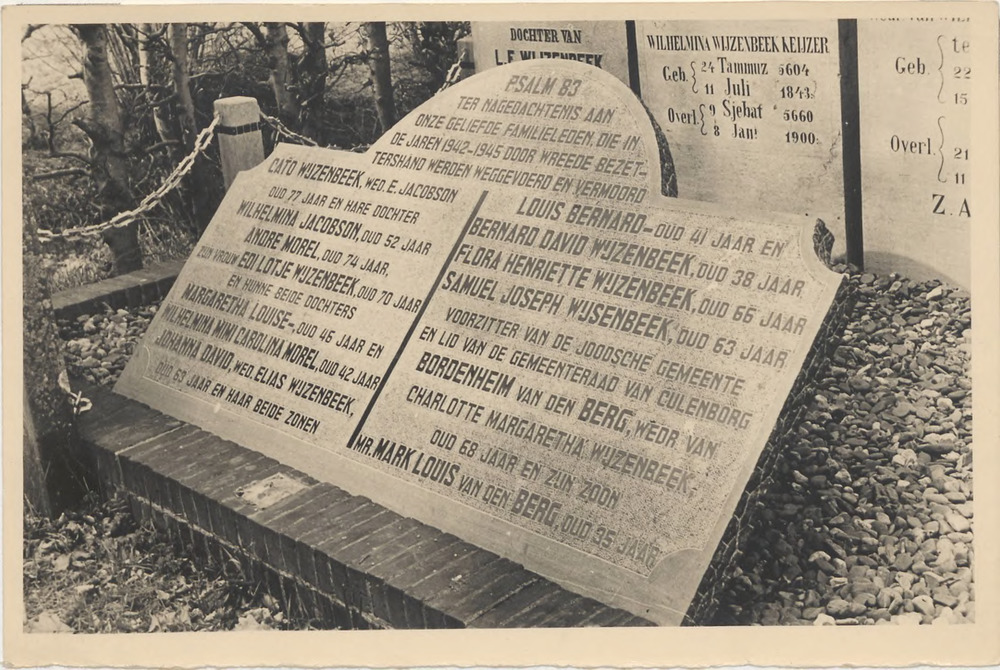 PSALM 83
TER NAGEDACHTENIS AAN
ONZE GELIEFDE FAMILIELEDEN, DIE IN
DE JAREN 1942-1945 DOOR WREEDE BEZET-
TERSHAND WERDEN WEGGEVOERD EN VERMOORD
CATO WIJZENBEEK, WED. E. JACOBSON
OUD 77 JAAR EN HARE DOCHTER
WILHELMINA JACOBSON, OUD 52 JAAR
ANDRE MOREL, OUD 74 JAAR,
ZIJN VROUW EDI LOTJE WIJZENBEEK, OUD 70 JAAR
EN HUNNE BEIDE DOCHTERS
MARGARETHA LOUISE-, OUD 45 JAAR EN
WILHELMINA MIMI CAROLINA MOREL, OUD 42 JAAR
JOHANNA DAVID, WED. ELIAS WIJZENBEEK,
OUD 63 JAAR EN HAAR BEIDE ZONEN
LOUIS BERNARD- OUD 41 JAAR EN
BERNARD DAVID WIJZENBEEK, OUD 38 JAAR
FLORA HENRIETTE WIJZENBEEK, OUD 66 JAAR
SAMUEL JOSEPH WIJSENBEEK, OUD 63 JAAR
VOORZITTER VAN DE JOODSCHE GEMEENTE
EN LID VAN DE GEMEENTERAAD VAN CULENBORG
BORDENHEIM VAN DEN BERG, WEDR VAN
CHARLOTTE MARGARETHA WIJZENBEEK,
OUD 68 JAAR EN ZIJN ZOON
MR. MARK LOUIS VAN DEN BERG, OUD 35 JAAR
DOCHTER VAN
L.E. WIJZENBEEK
WILHELMINA WIJZENBEEK KEIJZER
Geb. 24 Tammuz 5604
11 Juli 1843
Overl. 9 Sjebat 5660
8 Jan! 1900
te
Geb. 22
15
Overl. 21
11
Z. A